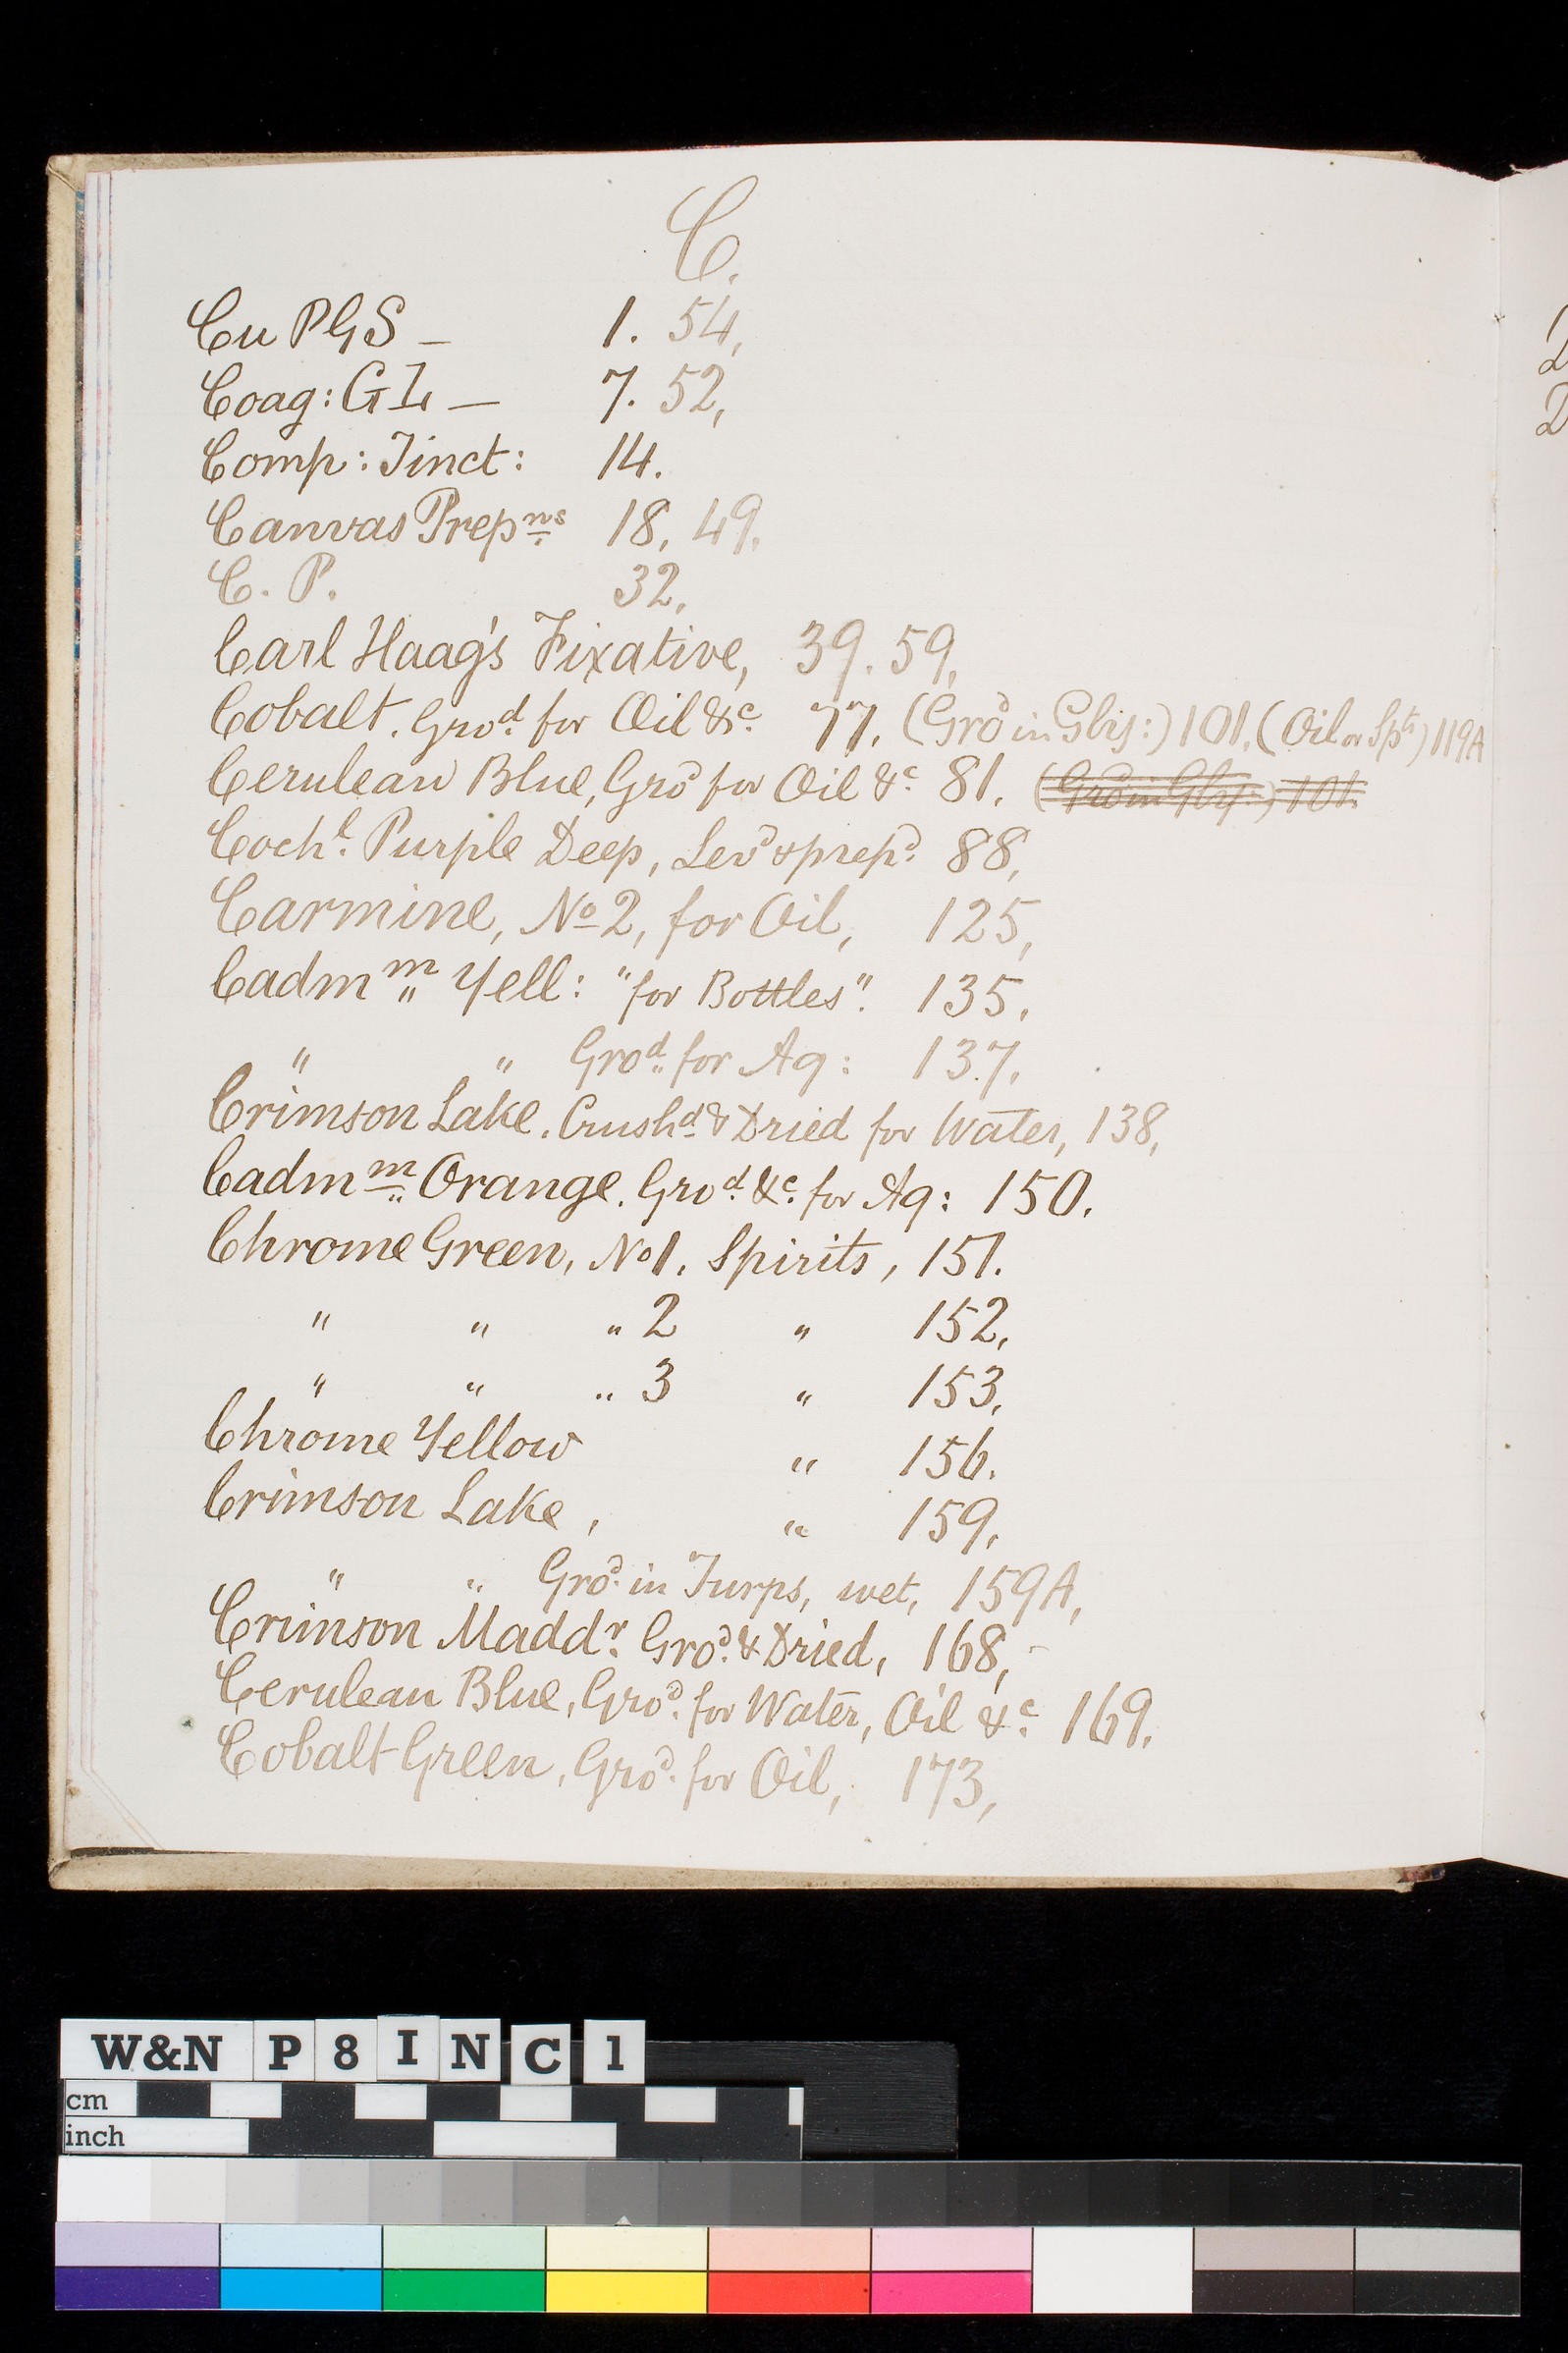 C.
Cu PGS — 1. 54,
Coag: GL — 7. 52,
Comp: Tinct: 14.
Canvas Prepns 18, 49,
C. P. 32,
Carl Haag's Fixative, 39. 59,
Cobalt. Grod. for Oil &c. 77, (Grod in Glyj:) 101, (Oil or Spts) 119A
Cerulean Blue, Grod for Oil &c 81, (Grod in Glyj:) 101.
Cochl. Purple Deep, Levd & prepd. 88,
Carmine, No 2, for Oil, 125,
Cadmm Yell: "for Bottles". 135,
" " Grod. for Aq: 137,
Crimson Lake. Crushd. & Dried for Water, 138,
Cadmm Orange. Grod. &c. for Aq: 150.
Chrome Green, No 1. Spirits, 151.
" " " 2 " 152,
" " " 3 " 153,
Chrome Yellow " 156.
Crimson Lake, " 159,
" " Grod. in Turps, wet, 159A,
Crimson Maddr. Grod. & Dried, 168,
Cerulean Blue, Grod. for Water, Oil &c. 169,
Cobalt Green, Grod. for Oil, 173,
W&N P 8 I N C 1
cm
inch